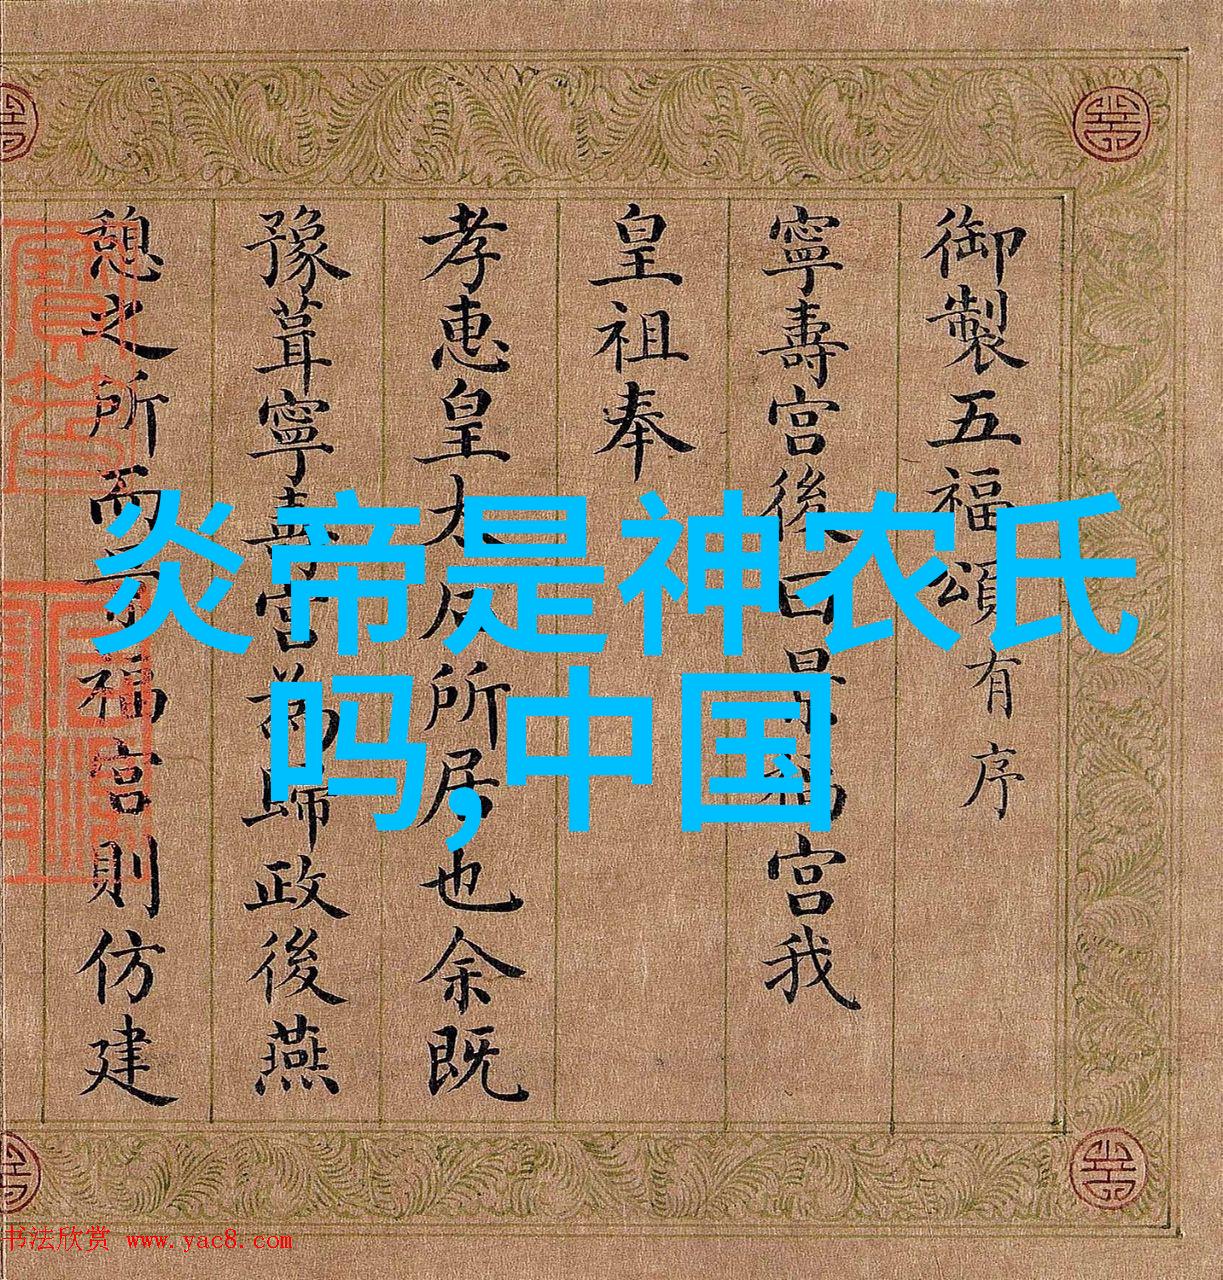 御製五福頌有序
寧壽宮後曰景福宮我
皇祖奉
孝惠皇太后所居也余既
豫葺寧壽宮為歸政後燕
憩之所而景福宮則仿建
炎帝是神农氏
吗,中国
书法欣赏 www.yac8.com